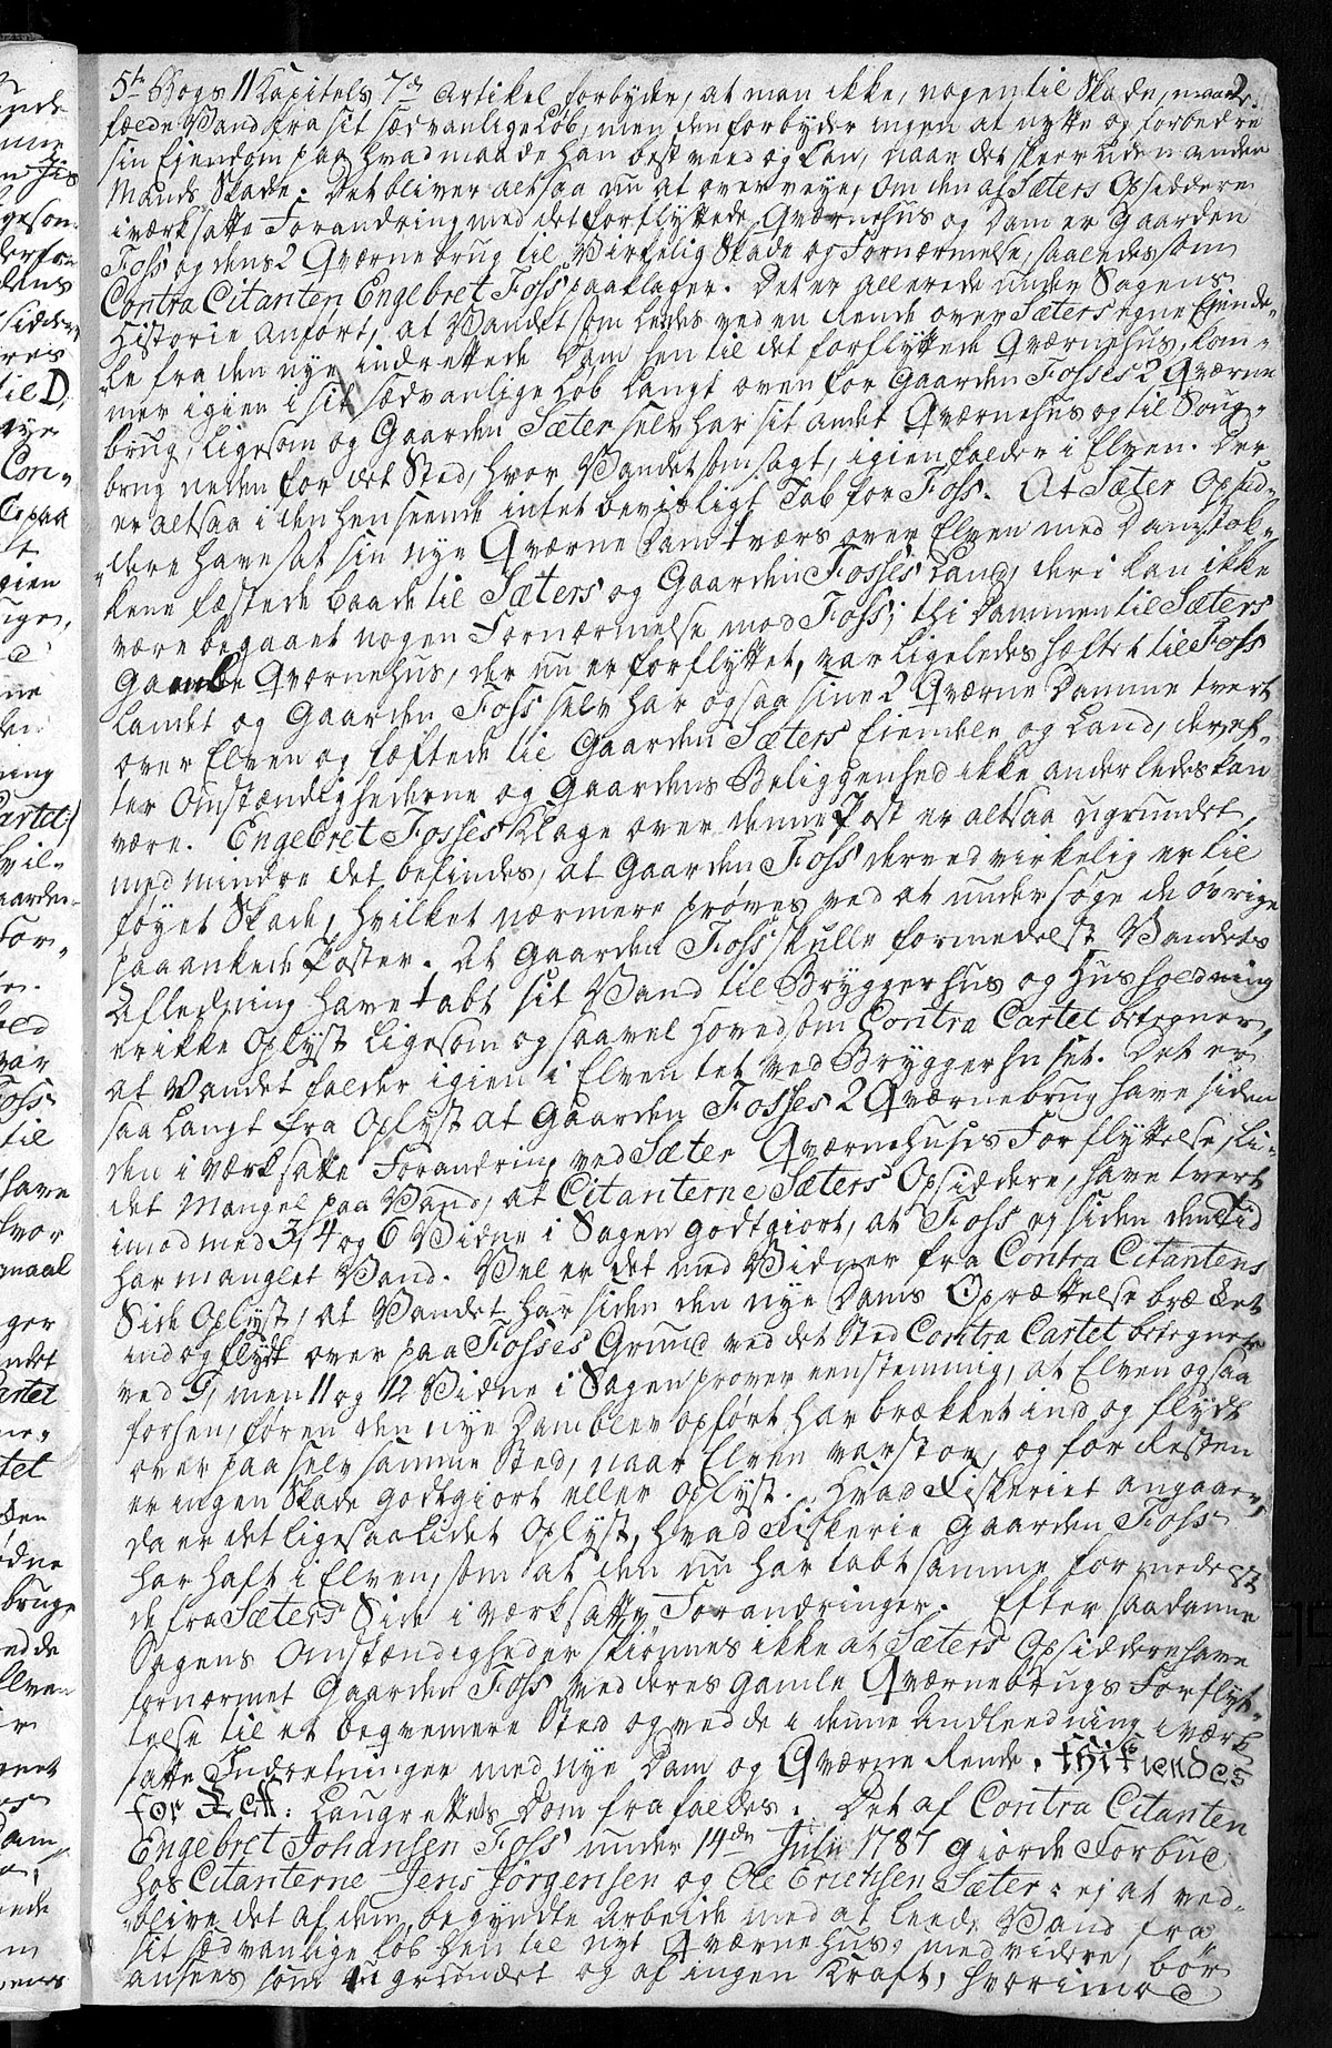 2.
5te Bogs 11 Kapitels 7de Artikel forbyder, at man ikke, nogen til Skade, maae
fælde Vand fra sit sædvanlige Løb, men den forbyder ingen at nytte og forbedre
sin Ejendom paa hvad maade han best veed og kan, naar det skeer uden anden
Mands Skade. Det bliver altsaa nu at overveye, om den af Sæters Opsiddere
iværksatte Forandring med det forflyttede Qværnehus og Dam er Gaarden
Foss og dens 2 Qværnebrug til Virkelig Skade og Fornærmelse, saaledes som
Contra Citanten Engebret Foss paaklager. Det er allerede under Sagens
Historie anført, at Vandet som ledes ved en Rende over Sæters egne Eiende-
le fra den nye indrettede Dam hen til det forflyttede Qværnehus, kom-
mer igien i sit sædvanlige Løb langt oven for Gaarden Fosses 2 Qværne
brug, ligesom og Gaarden Sæter selv har sit andet Qværnehus og til Soug-
brug neden for det Sted, hvor Vandet som sagt, igien falder i Elven. Der
er altsaa i den henseende intet beviisligt Tab for Foss. At Sæter Opsid-
dere have sat sin nye Qværne Dam tværs over Elven med Damstok-
kene fæstede baade til Sæters og Gaarden Fosses Land, deri kan ikke
være begaaet nogen Fornærmelse mod Foss; thi Dammen til Sæters
Gamle Qværnehus, der nu er forflyttet, var ligeledes hæftet til Foss
Landet og Gaarden Foss selv har ogsaa sine 2 Qværne Damme tvert
over Elven og hæftede til Gaarden Sæters Eiendele og Land, der ef-
ter Omstændighederne og Gaardens Beliggenhed ikke anderledes kan
være. Engebret Fosses Klage over denne Post er altsaa ugrundet,
med mindre det befindes, at Gaarden Foss derved virkelig er til
føyet Skade, hvilket nærmere prøves ved at undersøge de øvrige
paaankede Poster. At Gaarden Foss skulle formedelst Vandets
Afledning have tabt sit Vand til Bryggerhus og Husholdning
er ikke Oplyst ligesom og saavel Hoved som Contra Cartet betegner,
at Vandet falder igien i Elven tet ved Bryggerhuset. Det er
saa langt fra Oplyst at Gaarden Fosses 2 Qværnebrug have siden
den iværksatte Forandring ved Sæter Qværnehuses Forflyttelse li-
det Mangel paa Vand, at Citanterne Sæters Opsiddere, have tvert
imod med 3, 4 og 6 Vidne i Sagen godtgiort, at Foss ej siden den Tid
har manglet Vand. Vel er det med Vidner fra Contra Citantens
Side Oplyst, at Vandet har siden den nye Dams Oprættelse brækket
ind og flydt over paa Fosses Grund ved det Sted Contra Cartet betegner
ved G, men 11 og 12 Vidne i Sagen prover eenstemmig, at Elven ogsaa
forhen, førend den nye Dam blev opført har brækket ind og flydt
over paa selv samme Sted, naar Elven var stor, og for Resten
er ingen Skade godtgiort eller Oplyst. Hvad Fiskeriet angaaer,
da er det ligesaa lidet Oplyst, hvad Fiskerie Gaarden Foss
har haft i Elven, som at den nu har tabt samme formedelst
de fra Sæters Side iværksatte Forandringer. Efter saadanne
Sagens Omstændigheder skiønnes ikke at Sæters Opsiddere have
fornærmet Gaarden Foss ved deres gamle Qværnebrugs Forflyt-
telse til et beqvemere Sted og ved de i denne Andleedning iværk
satte Indretninger med nye Dam og Qværne Rende. Thi kiendes
for Rett: Laugrettets Dom frafaldes. Det af Contra Citanten
Engebret Johansen Foss under 14de Julii 1787 giorde Forbud
hos Citanterne Jens Jørgensen og Ole Erichsen Sæter: ej at ved-
blive det af dem begyndte Arbeide med at leede Vand fra
sit sædvanlige Løb hen til nyt Qværnehus, med videre, bør
ansees som ugrundet og af ingen Kraft, hvorimod